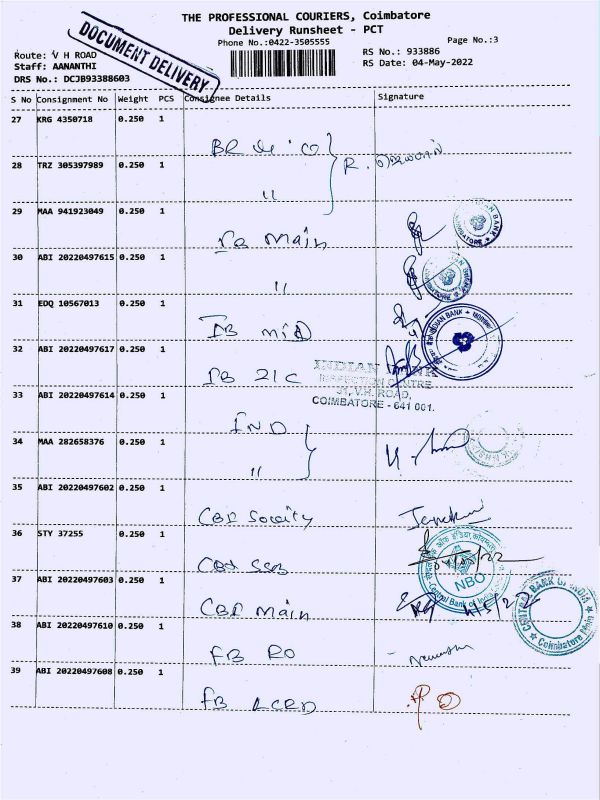 THE PROFESSIONAL COURIERS, Coimbatore
Delivery Runsheet - PCT
Phone No.:0422-3505555
Page No.:3
DOCUMENT DELIVERY
Route: V H ROAD
RS No.: 933886
Staff: AANANTHI
RS Date: 04-May-2022
DRS No.: DCJB93388603
S No Consignment No Weight PCS Consignee Details Signature
27 KRG 4350718 0.250 1
28 TRZ 305397989 0.250 1 "
29 MAA 941923049 0.250 1 IB main
30 ABI 20220497615 0.250 1 "
31 EDQ 10567013 0.250 1 IB mid
32 ABI 20220497617 0.250 1 IB 21C
INDIAN BANK
INSPECTION CENTRE
31, V.H. ROAD,
COIMBATORE - 641 001.
33 ABI 20220497614 0.250 1 IND
34 MAA 282658376 0.250 1 "
35 ABI 20220497602 0.250 1 CBI Socity
36 STY 37255 0.250 1 CBI
NBO
Central Bank of India
37 ABI 20220497603 0.250 1 CBI main
CENTRAL BANK OF INDIA
Coimbatore Main
38 ABI 20220497610 0.250 1 FB RO
39 ABI 20220497608 0.250 1 FB LCRD